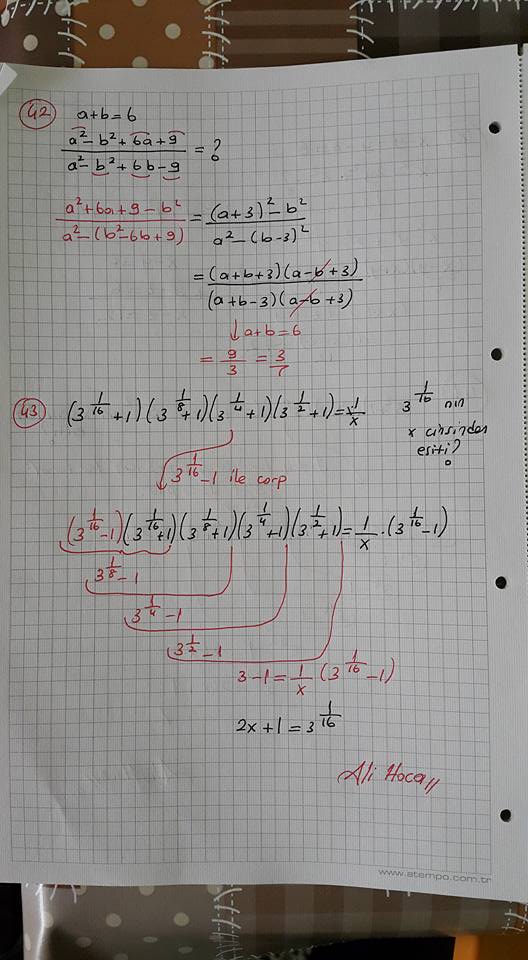 42 a+b=6
a²-b²+6a+9 / a²-b²+6b-9 = ?
a²+6a+9-b² / a²-(b²-6b+9) = (a+3)²-b² / a²-(b-3)²
= (a+b+3)(a-b+3) / (a+b-3)(a-b+3)
↓a+b=6
= 9/3 = 3/7
43 (3^(1/16)+1)(3^(1/8)+1)(3^(1/4)+1)(3^(1/2)+1)=1/x 3^(1/16) nın
x cinsinden
eşiti?
3^(1/16)-1 ile çarp
(3^(1/16)-1)(3^(1/16)+1)(3^(1/8)+1)(3^(1/4)+1)(3^(1/2)+1)=1/x·(3^(1/16)-1)
3^(1/8)-1
3^(1/4)-1
3^(1/2)-1
3-1=1/x(3^(1/16)-1)
2x+1=3^(1/16)
Ali Hoca,,
www.stempo.com.tr